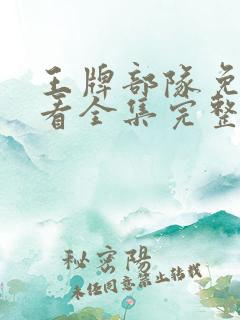 王牌部队免
看全集完整
秘密阳
未经同意禁止转载